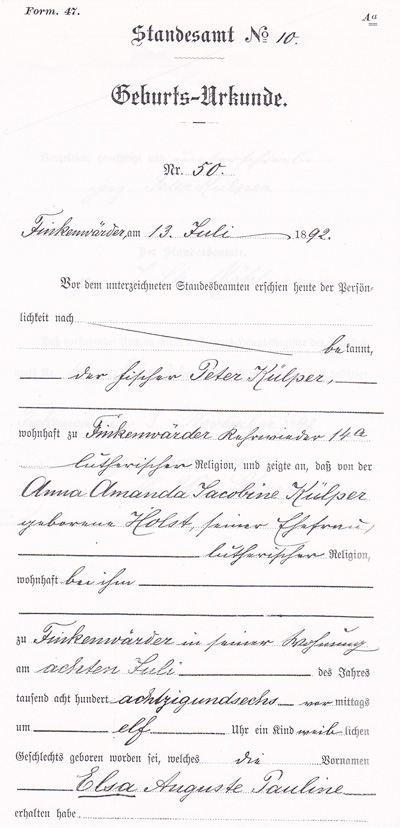 Form. 47.
Aa
Standesamt № 10.
Geburts-Urkunde.
Nr. 50.
Finkenwärder, am 13. Juli 1892.
Vor dem unterzeichneten Standesbeamten erschien heute der Persön-
lichkeit nach
bekannt,
der Fischer Peter Külper,
wohnhaft zu Finkenwärder Kehrwieder 14a
lutherischer Religion, und zeigte an, daß von der
Anna Amanda Jacobine Külper
geborene Holst, seiner Ehefrau,
lutherischer Religion,
wohnhaft bei ihm
zu Finkenwärder in seiner Wohnung
am achten Juli des Jahres
tausend acht hundert achtzigundsechs vormittags
um elf Uhr ein Kind weiblichen
Geschlechts geboren worden sei, welches die Vornamen
Elsa Auguste Pauline
erhalten habe